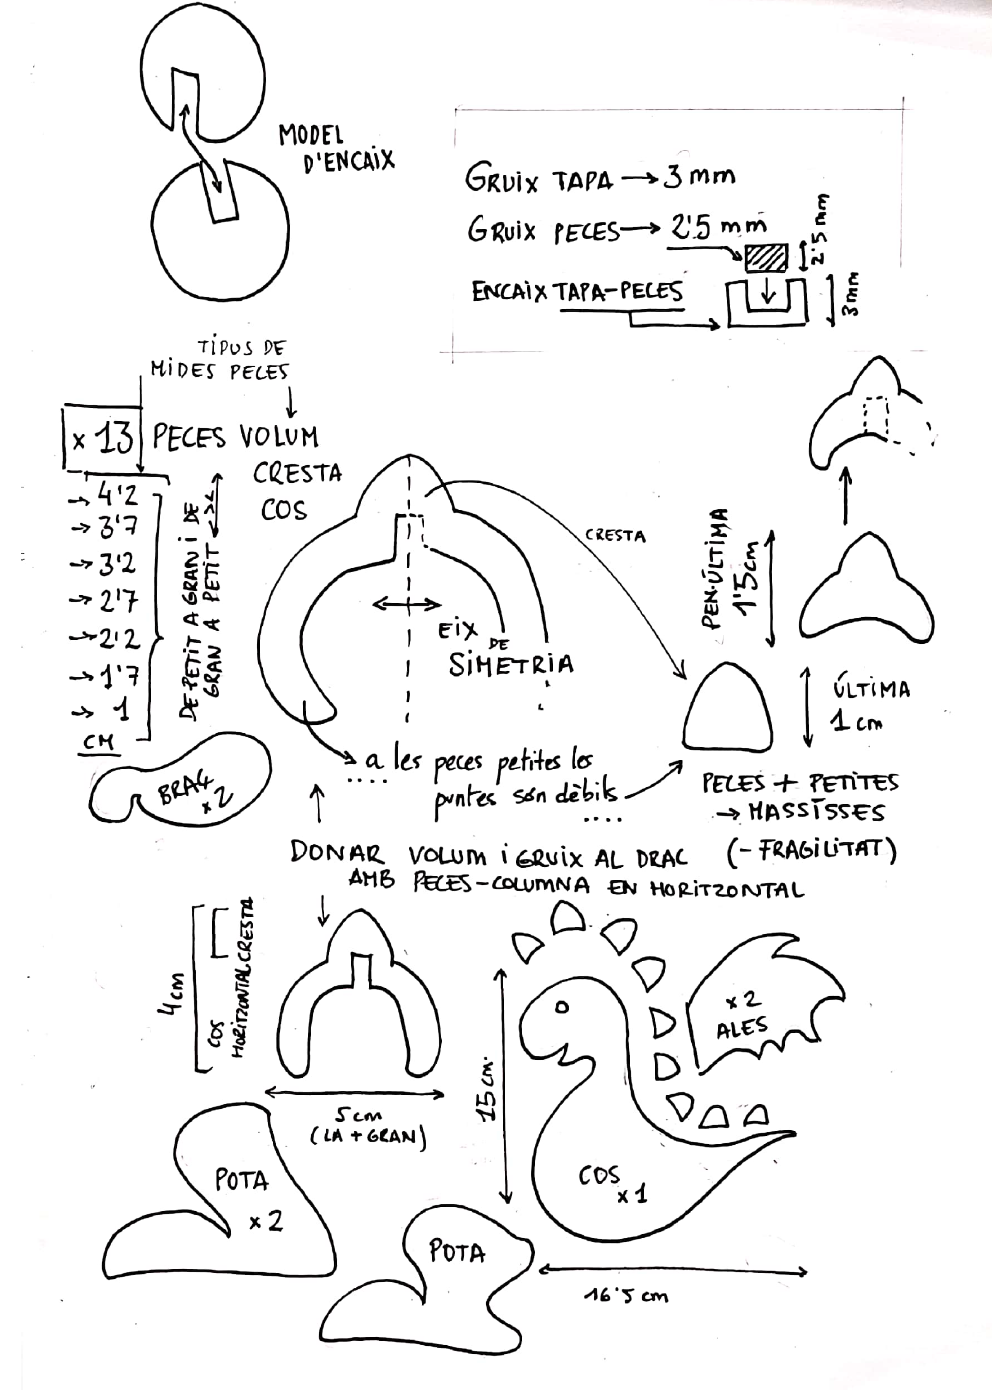 MODEL
D'ENCAIX
GRUIX TAPA → 3 mm
GRUIX PECES → 2'5 mm
2'5 mm
ENCAIX TAPA-PECES
3mm
TIPUS DE
MIDES PECES
x 13 PECES VOLUM
CRESTA
COS
→ 4'2
→ 3'7
→ 3'2
→ 2'7
→ 2'2
→ 1'7
→ 1
CM
DE PETIT A GRAN I DE
GRAN A PETIT
CRESTA
EIX DE
SIMETRIA
PEN-ÚLTIMA
1'5cm
ÚLTIMA
1 cm
a les peces petites les
puntes són dèbils
....
....
PECES + PETITES
→ MASSISSES
(- FRAGILITAT)
BRAÇ
x 2
DONAR VOLUM i GRUIX AL DRAC
AMB PECES-COLUMNA EN HORITZONTAL
4cm
CRESTA
COS
HORITZONTAL
5cm
(LA + GRAN)
15 cm.
x 2
ALES
COS
x 1
POTA
x 2
POTA
16'5 cm